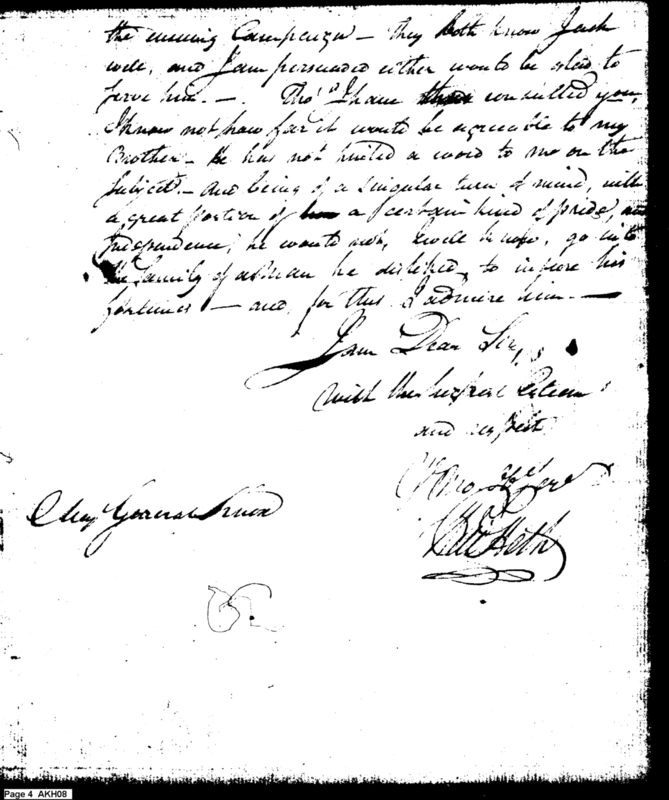 the ensuing Campaign — they both know Jack
well, and I am persuaded either would be glad to
serve him. —. Tho' I have consulted you,
I know not how far it would be agreeable to my
Brother — He has not hinted a word to me on the
subject — And being of a singular turn of mind, with
a great portion of a certain kind of pride, and
Independence; he would not, I well know, go into
the family of a Man he disliked, to insure his
fortunes — and, for this I admire him. —
I am Dear Sir,
with the highest Esteem
and respect
Yr Mo
Will Heth
Maj General Knox
Page 4 AKH08